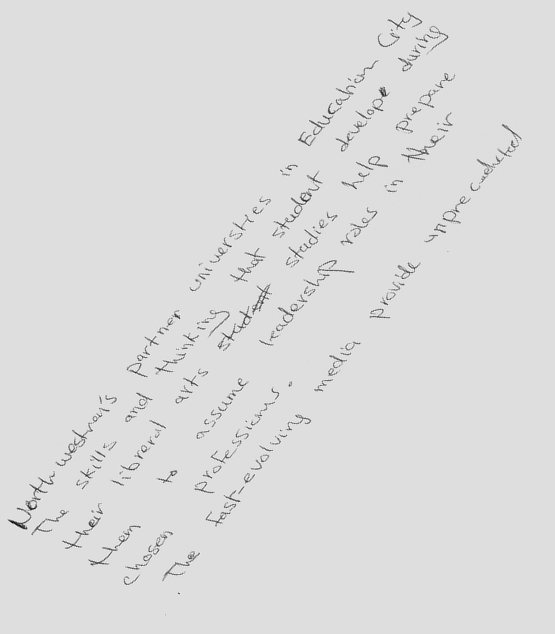 Northwestner's Partner universties in Education City
The skills and thinking that student develop during
their libreral arts studies help prepare
them to assume leadership roles in their
chosen professions.
The fast-evolving media provide